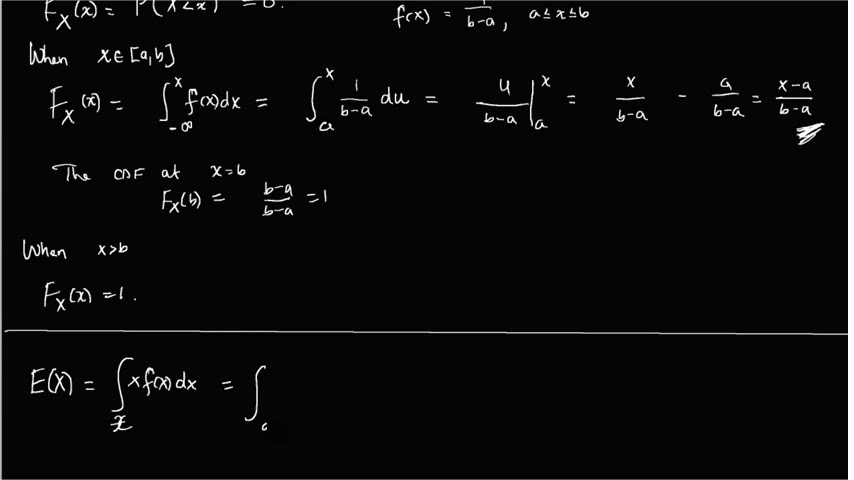 F_X(x) = P(X<x) = 0. f(x) = 1/(b-a), a≤x≤b
When x∈[a,b]
F_X(x) = ∫_{-∞}^{x} f(x)dx = ∫_a^x 1/(b-a) du = u/(b-a) |_a^x = x/(b-a) - a/(b-a) = (x-a)/(b-a)
The CDF at x=b
F_X(b) = (b-a)/(b-a) = 1
When x>b
F_X(x) = 1.
E(X) = ∫_x x f(x) dx = ∫